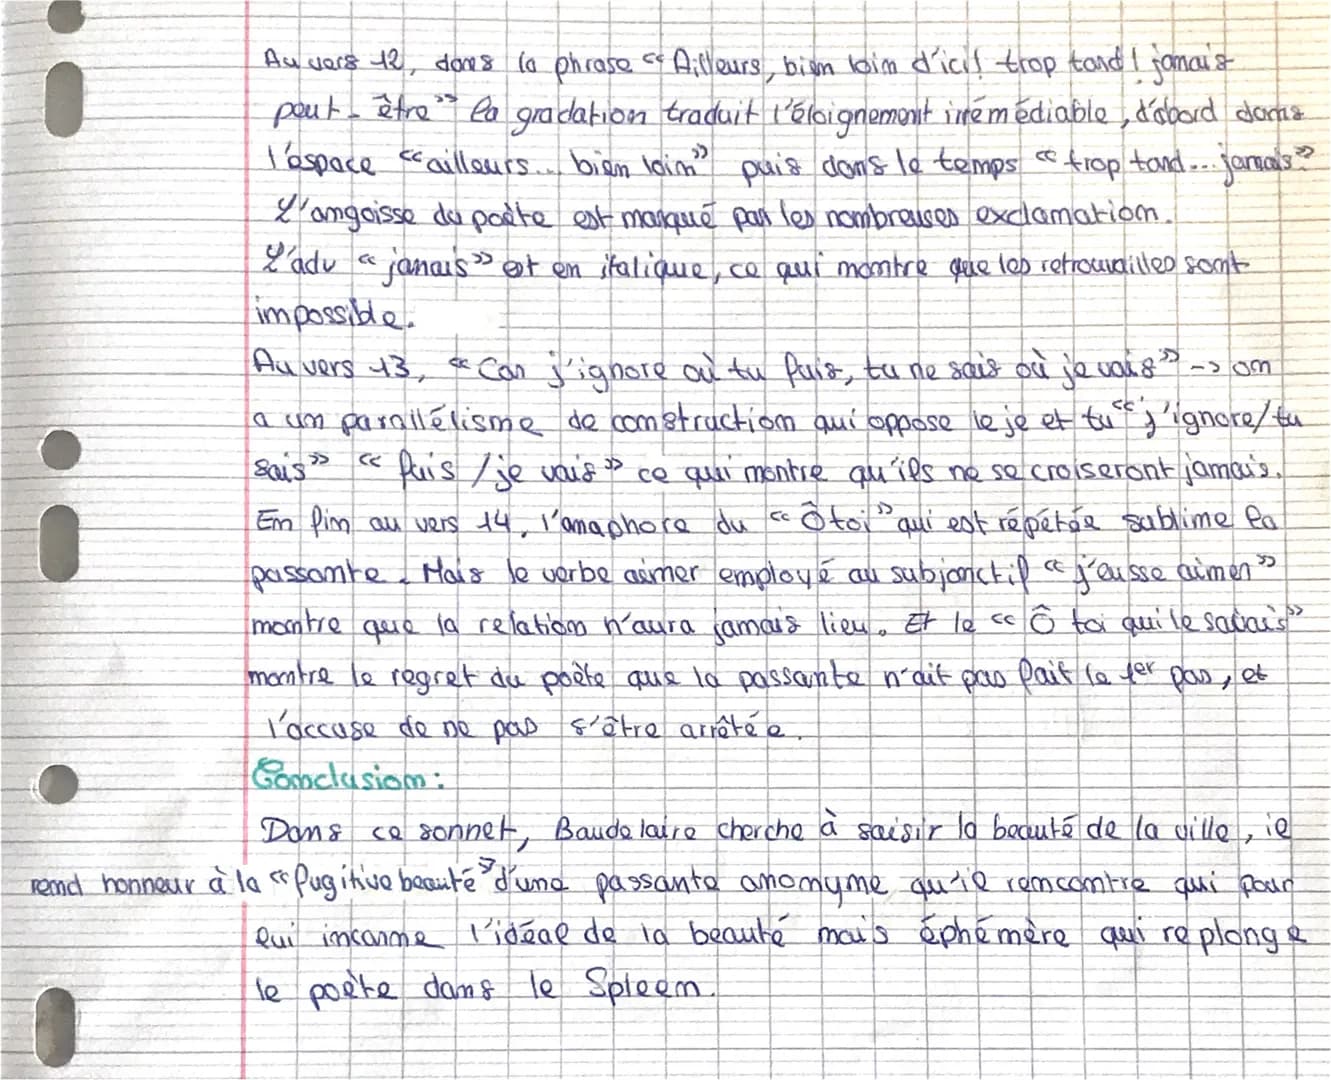 Au vers 12, dans la phrase « Ailleurs, bien loin d'ici! trop tard! jamais
peut-être » la gradation traduit l'éloignement irrémédiable, d'abord dans
l'espace « ailleurs... bien loin » puis dans le temps « trop tard... jamais »
L'angoisse du poète est marqué par les nombreuses exclamation.
L'adv « jamais » est en italique, ce qui montre que les retrouvailles sont
impossible.
Au vers 13, « Car j'ignore où tu fuis, tu ne sais où je vais » -> on
a un parallélisme de construction qui oppose le je et tu « j'ignore/tu
sais » « fuis /je vais » ce qui montre qu'ils ne se croiseront jamais.
En fin au vers 14, l'anaphore du « Ô toi » qui est répétée sublime la
passante. Mais le verbe aimer employé au subjonctif « j'eusse aimer »
montre que la relation n'aura jamais lieu. Et le « Ô toi qui le savais »
montre le regret du poète que la passante n'ait pas fait le 1er pas, et
l'accuse de ne pas s'être arrêtée.
Conclusion :
Dans ce sonnet, Baudelaire cherche à saisir la beauté de la ville, il
rend honneur à la « fugitive beauté » d'une passante anonyme qu'il rencontre qui pour
lui incarne l'idéal de la beauté mais éphémère qui replonge
le poète dans le Spleen.